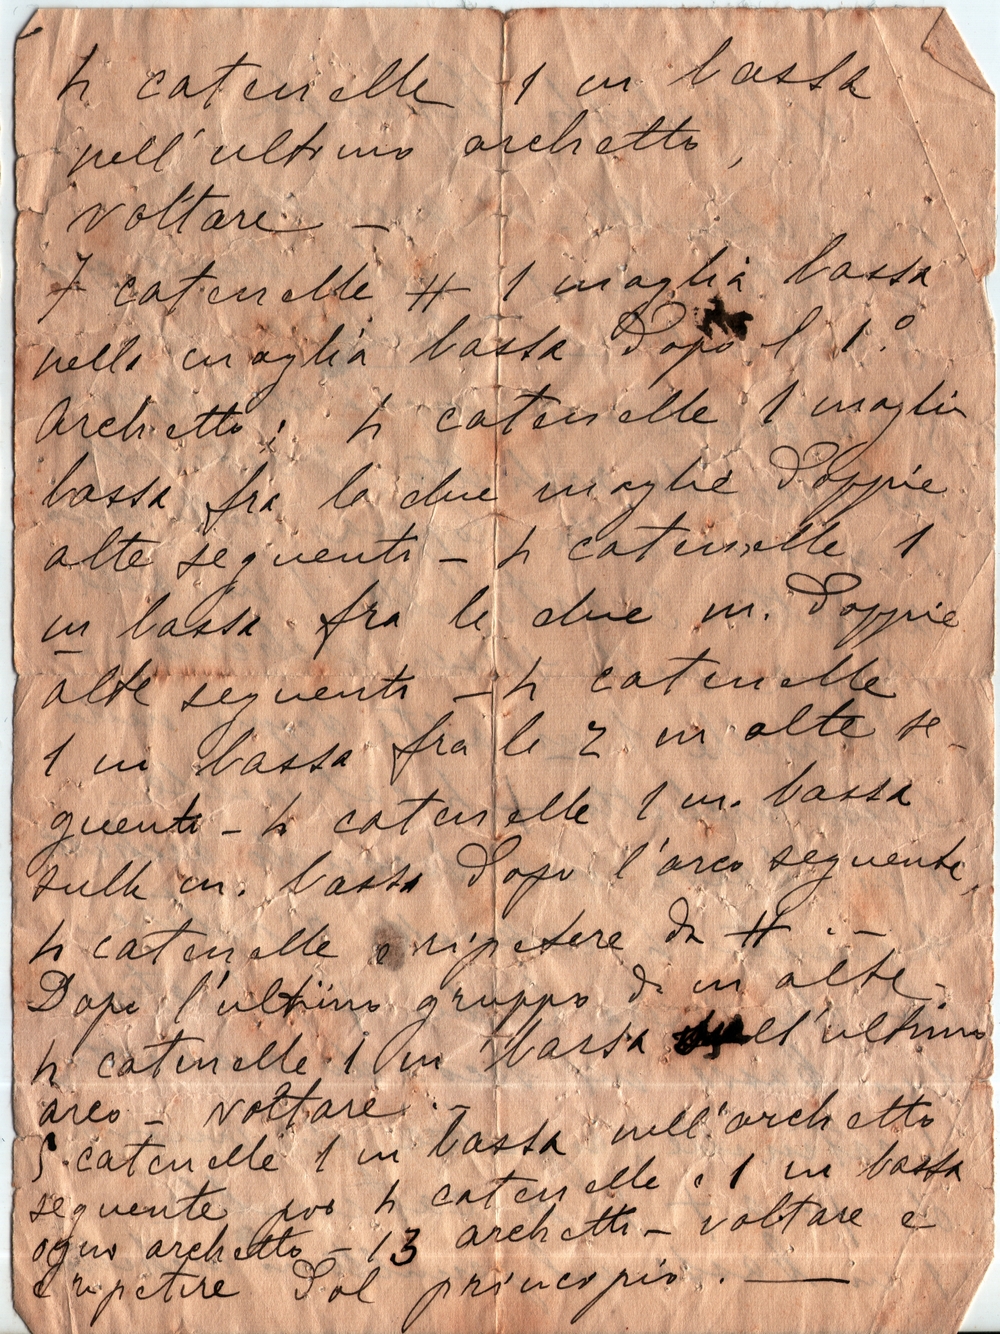 4 catenelle 1 m bassa
nell'ultimo archetto,
voltare –
7 catenelle # 1 maglia bassa
nella maglia bassa dopo l 1°
archetto; 4 catenelle 1 maglia
bassa fra le due maglie doppie
alte seguenti – 4 catenelle 1
m bassa fra le due m. doppie
alte seguenti – 4 catenelle
1 m bassa fra le 2 m alte se-
guenti – 4 catenelle 1 m. bassa
sulla m. bassa dopo l'arco seguente,
4 catenelle e ripetere da # . –
Dopo l'ultimo gruppo di m alte.
4 catenelle 1 m bassa nell'ultimo
arco – voltare . –
5 catenelle 1 m bassa nell'archetto
seguente poi 4 catenelle e 1 m bassa
ogni archetto – 13 archetti – voltare e
e ripetere dal principio . —